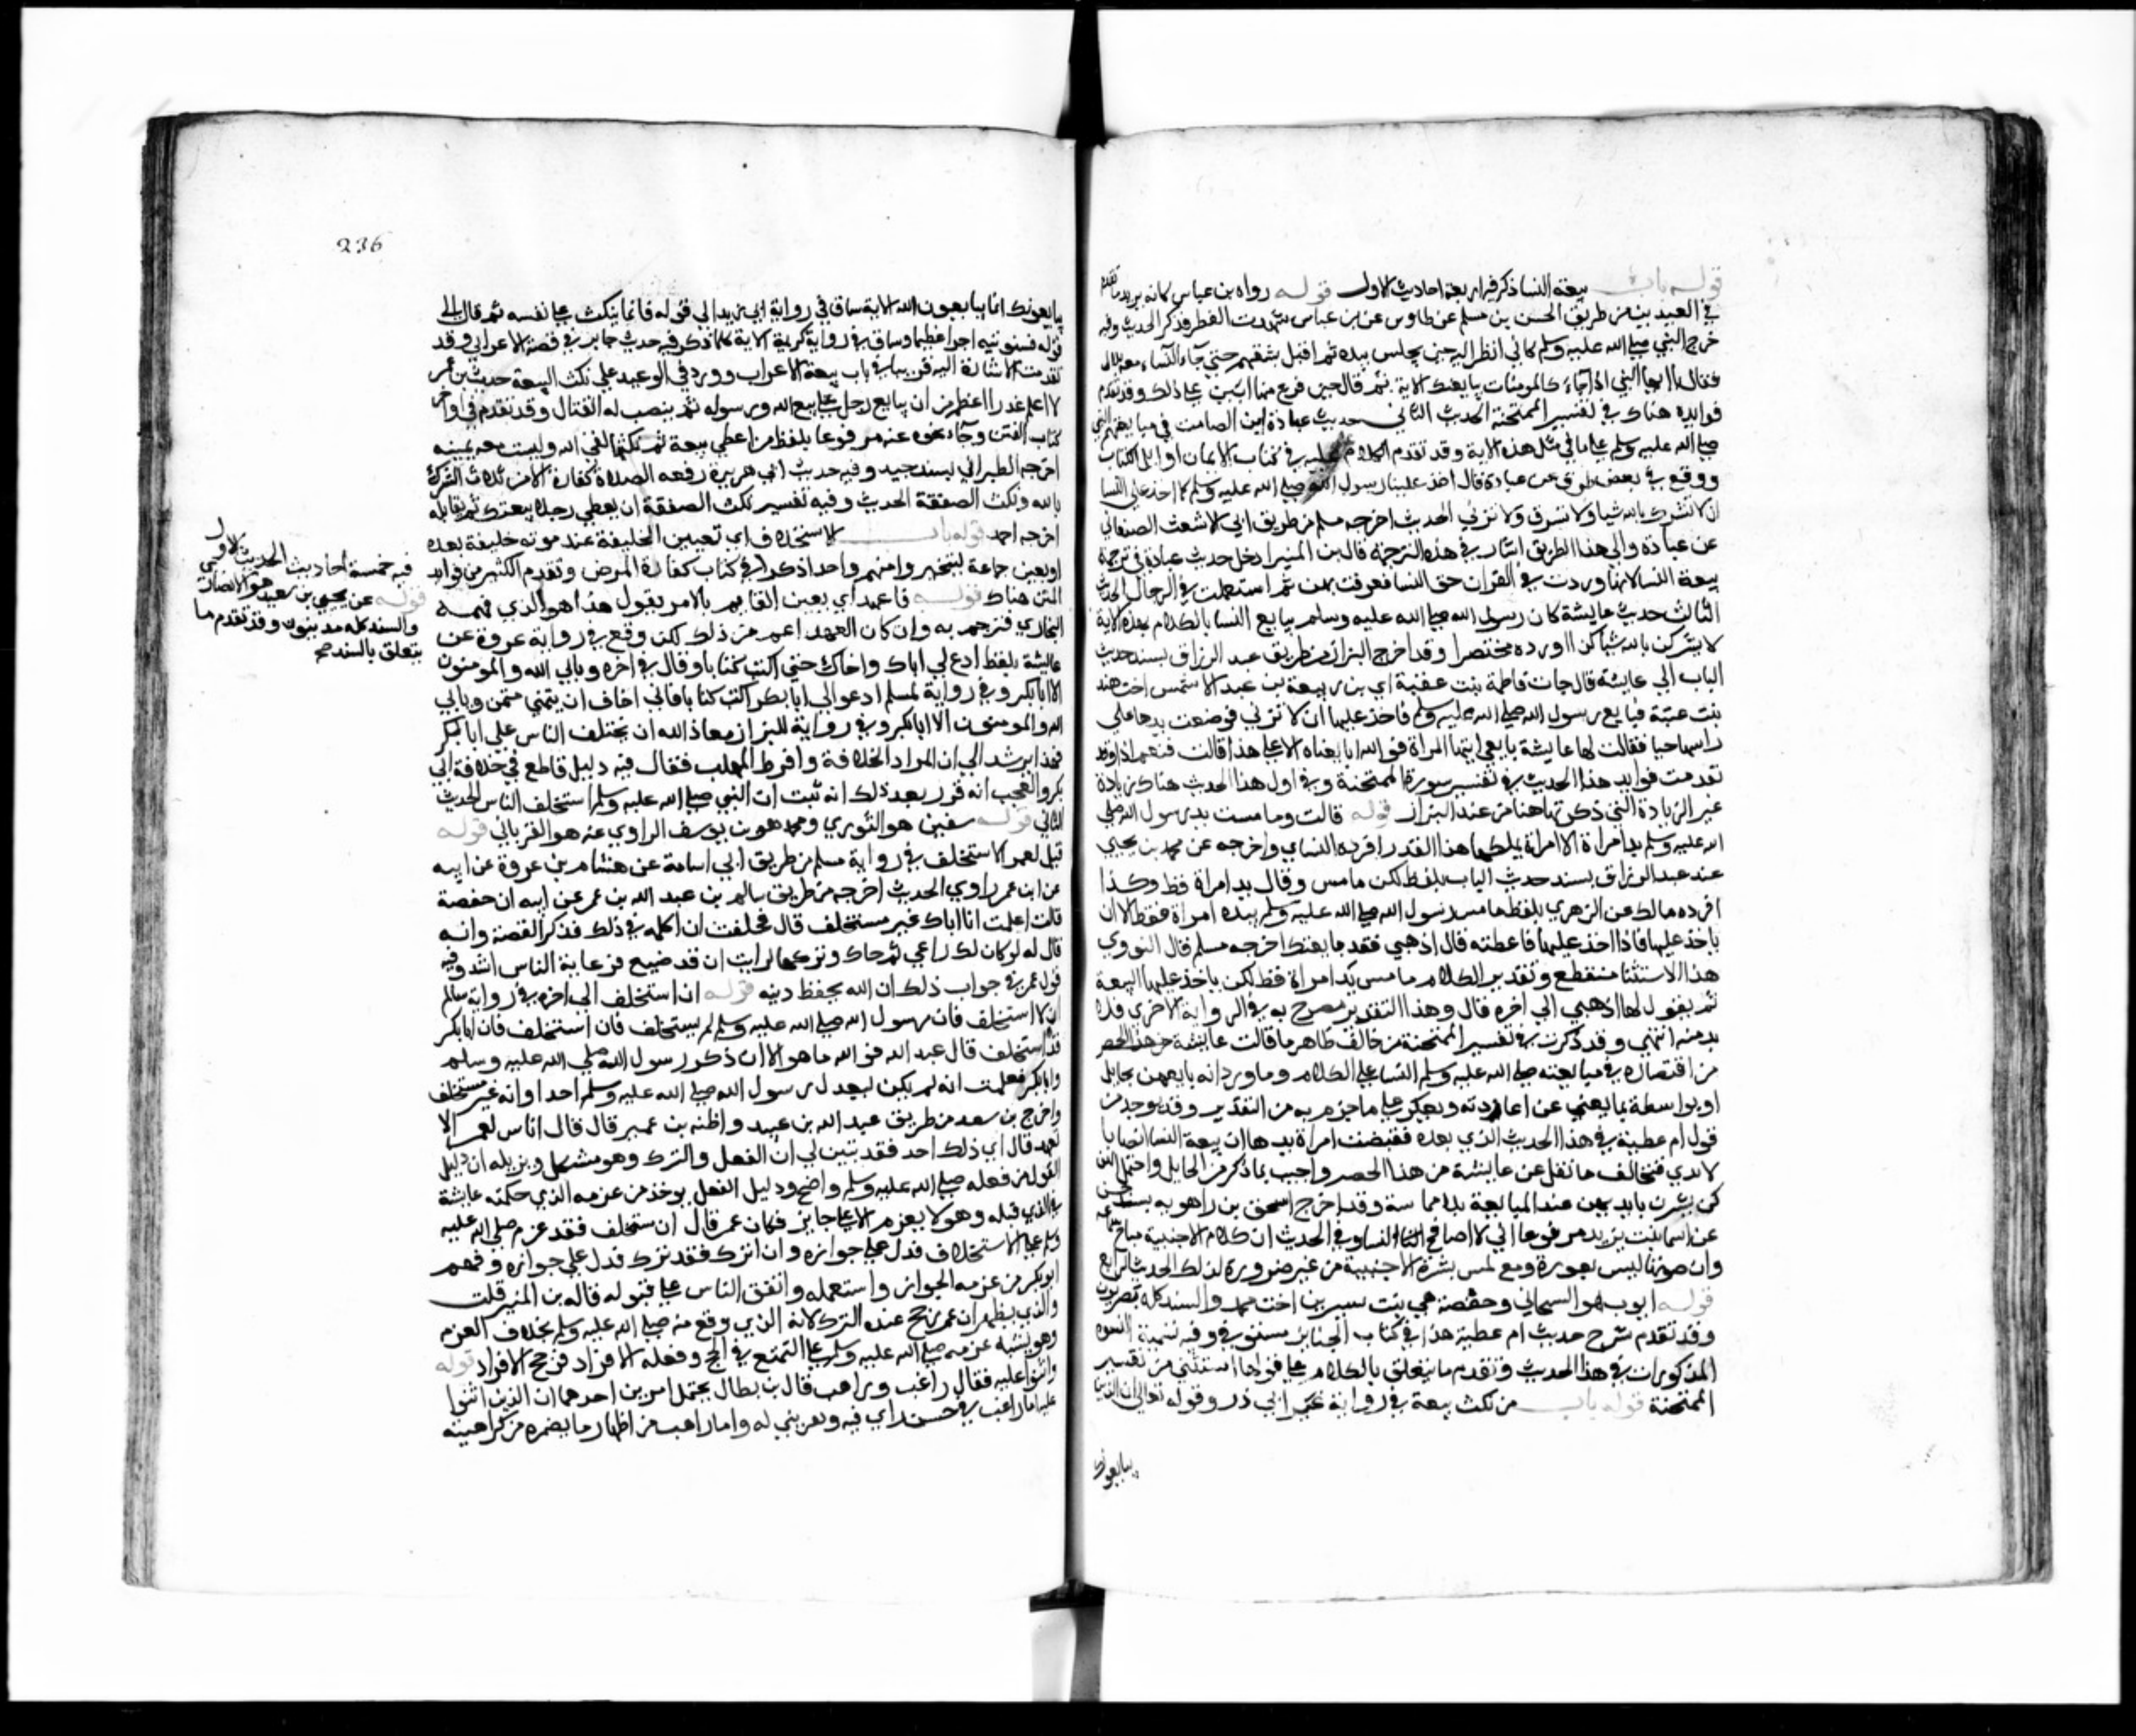 قوله باب بيعة النسا ذكر فيه اربعة احاديث الاول قوله رواه بن عباس كانه يريد ما تقدم
في العيدين من طريق الحسن بن مسلم عن طاوس عن بن عباس شهدت الفطر فذكر الحديث وفيه
خرج النبي صلى الله عليه وسلم كاني انظر اليه حين يجلس بيده ثم اقبل يشقهم حتي جآء النسآء معه بلال
فقال يا ايها النبي اذا جآءك المومنات يبايعنك الاية ثم قال حين فرغ منها انتن على ذلك وقد تقدم
فوايده هناك في تفسير الممتحنة الحديث الثاني حديث عبادة بن الصامت في مبايعتهم النبي
صلى الله عليه وسلم على ما في مثل هذه الاية وقد تقدم الكلام عليه في كتاب الايمان اوايل الكتاب
ووقع في بعض طرقه عن عبادة قال اخذ علينا رسول الله صلى الله عليه وسلم كما اخذ على النسا
ان لا نشرك بالله شيا ولا نسرق ولا نزني الحديث اخرجه مسلم من طريق ابي الاشعث الصنعاني
عن عبادة والى هذا الطريق اشار في هذه الترجمة قال بن المنير ادخل حديث عبادة في ترجمة
بيعة النسا لانها وردت في القران حق النسا فعرفت بهن ثم استعملت في الرجال الحديث
الثالث حديث عايشة كان رسول الله صلى الله عليه وسلم يبايع النسا بالكلام بهذه الاية
لا يشركن بالله شيا كذا اورده مختصرا وقد اخرج البزار من طريق عبد الرزاق بسند حديث
الباب الى عايشة قال جات فاطمة بنت عقبة اي بن ربيعة بن عبد شمس اخت هند
بنت عتبة تبايع رسول الله صلى الله عليه وسلم فاخذ عليها ان لا تزني فوضعت يدها على
راسها حيا فقالت لها عايشة بايعي ايتها المراة فو الله ما بايعناه الا على هذا قالت فنعم اذا وقد
تقدمت فوايد هذا الحديث في تفسير سورة الممتحنة وفي اول هذا الحديث هناك زيادة
غير الزيادة التي ذكرتها هنا من عند البزار قوله قالت وما مست يد رسول الله صلى
الله عليه وسلم يد امراة الا امراة يملكها هذا القدر افرده النساي واخرجه عن محمد بن يحيى
عند عبد الرزاق بسند حديث الباب بلفظ لكن ما مس وقال يد امراة قط وكذا
افرده مالك عن الزهري بلفظ ما مس رسول الله صلى الله عليه وسلم بيده امراة قط الا ان
ياخذ عليها فاذا اخذ عليها فاعطته قال اذهبي فقد بايعتك اخرجه مسلم قال النووي
هذا الاستثنا منقطع وتقدير الكلام ما مس يد امراة قط لكن ياخذ عليها البيعة
ثم يقول لها اذهبي الى اخره قال وهذا التقدير مصرح به في الرواية الاخرى فلا
بد منه انتهي وقد ذكرت في تفسير الممتحنة من خالف ظاهر ما قالت عايشة من هذا الحصر
من اقتصاره في مبايعته صلى الله عليه وسلم النسا على الكلام وما ورد انه بايعهن بحايل
او بواسطة بما يغني عن اعادته ويعكر على ما جزم به من التقدير وقد يوجد من
قول ام عطية في هذا الحديث الذي بعده فقبضت امراة يدها ان بيعة النسا ايضا با
لايدي فتخالف ما نقل عن عايشة من هذا الحصر واجيب بما ذكر من الحايل واحتمل انهن
كن يشرن بايديهن عند المبايعة بلا مماسة وقد اخرج اسحق بن راهويه بسند حسن
عن اسما بنت يزيد مرفوعا اني لا اصافح النسا وفي الحديث ان كلام الاجنبية مباح سماعه
وان صوتها ليس بعورة ومنع لمس بشرة الاجنبية من غير ضرورة لذلك الحديث الرابع
قوله ايوب هو السختياني وحفصة هي بنت سيرين اخت محمد والسند كله بصريون
وقد تقدم شرح حديث ام عطية هذا في كتاب الجنايز مستوفى وفيه تسمية النسوه
المذكورات في هذا الحديث وتقدم ما يتعلق بالكلام على قولها استثني من تفسير
الممتحنة قوله باب من نكث بيعة في رواية غير ابي ذر وقوله تعالى ان الذين
يبايعونك
236
يبايعونك انما يبايعون الله الاية ساق في رواية ابي زيد الى قوله فانما ينكث على نفسه ثم قال الى
قوله فسنوتيه اجرا عظيما وساق في رواية كريمة الاية كلها ذكر فيه حديث جابر في قصة الاعرابي وقد
تقدمت الاشارة اليه قريبا في باب بيعة الاعراب وورد في الوعيد على نكث البيعة حديث بن عمر
لا اعلم غدرا اعظم من ان يبايع رجل على بيع الله ورسوله ثم ينصب له القتال وقد تقدم في اواخر
كتاب الفتن وجآء نحوه عنه مرفوعا بلفظ من اعطى بيعة ثم نكثها لقي الله وليست معه يمينه
اخرجه الطبراني بسند جيد وفيه حديث ابي هريرة رفعه الصلاة كفارة الا من ثلاث الشرك
بالله ونكث الصفقة الحديث وفيه تفسير نكث الصفقة ان يعطي رجلا بيعتك ثم يقاتله
اخرجه احمد قوله باب الاستخلاف اي تعيين الخليفة عند موته خليفة بعده
او يعين جماعة ليتخيروا منهم واحدا ذكر في كتاب كفارة المرض وتقدم الكثير من فوايد
المتن هناك قوله فاعهد اي يعين القايم بالامر بقول هذا هو الذي فهمه
البخاري فترجم به وان كان العهد اعم من ذلك لكن وقع في رواية عروة عن
عايشة بلفظ ادعي لي اباك واخاك حتى اكتب كتابا وقال في اخره ويابى الله والمومنون
الا ابا بكر وفي رواية لمسلم ادعو الى ابا بكر اكتب كتابا فاني اخاف ان يتمنى متمن ويابى
الله والمومنون الا ابا بكر وفي رواية للبزار معاذ الله ان تختلف الناس على ابا بكر
فهذا يرشد الى ان المراد الخلافة وافرط المهلب فقال فيه دليل قاطع في خلافة ابي
بكر والعجب انه قرر بعد ذلك انه ثبت ان النبي صلى الله عليه وسلم استخلف الناس الحديث
الثاني قوله سفين هو الثوري ومحمد هو بن يوسف الراوي عنه هو الفريابي قوله
قيل لعمر الا تستخلف في رواية مسلم من طريق ابي اسامة عن هشام بن عروة عن ابيه
عن ابن عمر راوي الحديث اخرجه من طريق سالم بن عبد الله بن عمر عن ابيه ان حفصة
قالت اعلمت ان اباك غير مستخلف قال فحلفت ان اكلمه في ذلك فذكر القصة وانه
قال له لو كان لك راعي ثم جاك وتركها لرايت ان قد ضيع فرعاية الناس اشد وفيه
قول عمر في جواب ذلك ان الله يحفظ دينه قوله ان استخلف الى اخره في رواية سالم
ان لا استخلف فان رسول الله صلى الله عليه وسلم لم يستخلف فان استخلف فان ابا بكر
قد استخلف قال عبد الله فو الله ما هو الا ان ذكر رسول الله صلى الله عليه وسلم
وابا بكر فعلمت انه لم يكن ليعدل برسول الله صلى الله عليه وسلم احدا وانه غير مستخلف
واخرج بن سعد من طريق عبد الله بن عبيد واظنه بن عمير قال قال اناس لعمر الا
تعهد قال اي ذلك اخذ فقد تبين لي ان الفعل والترك وهو مشكل ويزيله ان دليل
الترك من فعله صلى الله عليه وسلم واضح ودليل الفعل يوخذ من عزمه الذي حكته عايشة
في الذي قبله وهو لا يعزم الا على جايز فكان عمر قال ان استخلف فقد عزم صلى الله عليه
وسلم على الاستخلاف فدل على جوازه وان اترك فقد ترك فدل على جوازه وفهم
ابو بكر من عزمه الجواز واستعمله واتفق الناس على قبوله قاله بن المنير قلت
والذي يظهر ان عمر رجح عنده الترك لانه الذي وقع منه صلى الله عليه وسلم بخلاف العزم
وهو يشبه عزمه صلى الله عليه وسلم على التمتع في الحج وفعله الافراد فرجح الافراد قوله
واثنوا عليه فقال راغب وراهب قال بن بطال يحتمل امرين احدهما ان الذين اثنوا
عليه اما راغب في حسن راي فيه وتقريبي له واما راهب من اظهار ما يضمره من كراهيته
فيه خمسة احاديث الحديث الاول
قوله عن يحيى بن سعيد هو الانصاري
والسند كله مدنيون وقد تقدم ما
يتعلق بالسند صح